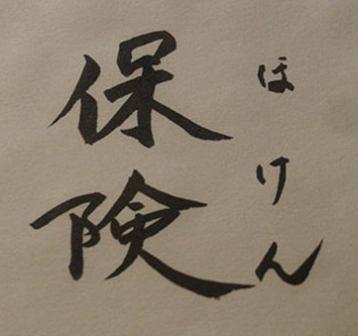 保険
ほけん